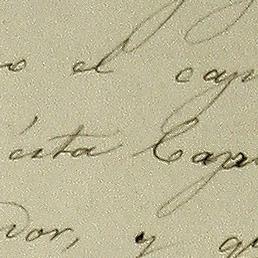 o el cap
ésta Capi
dor, y qu